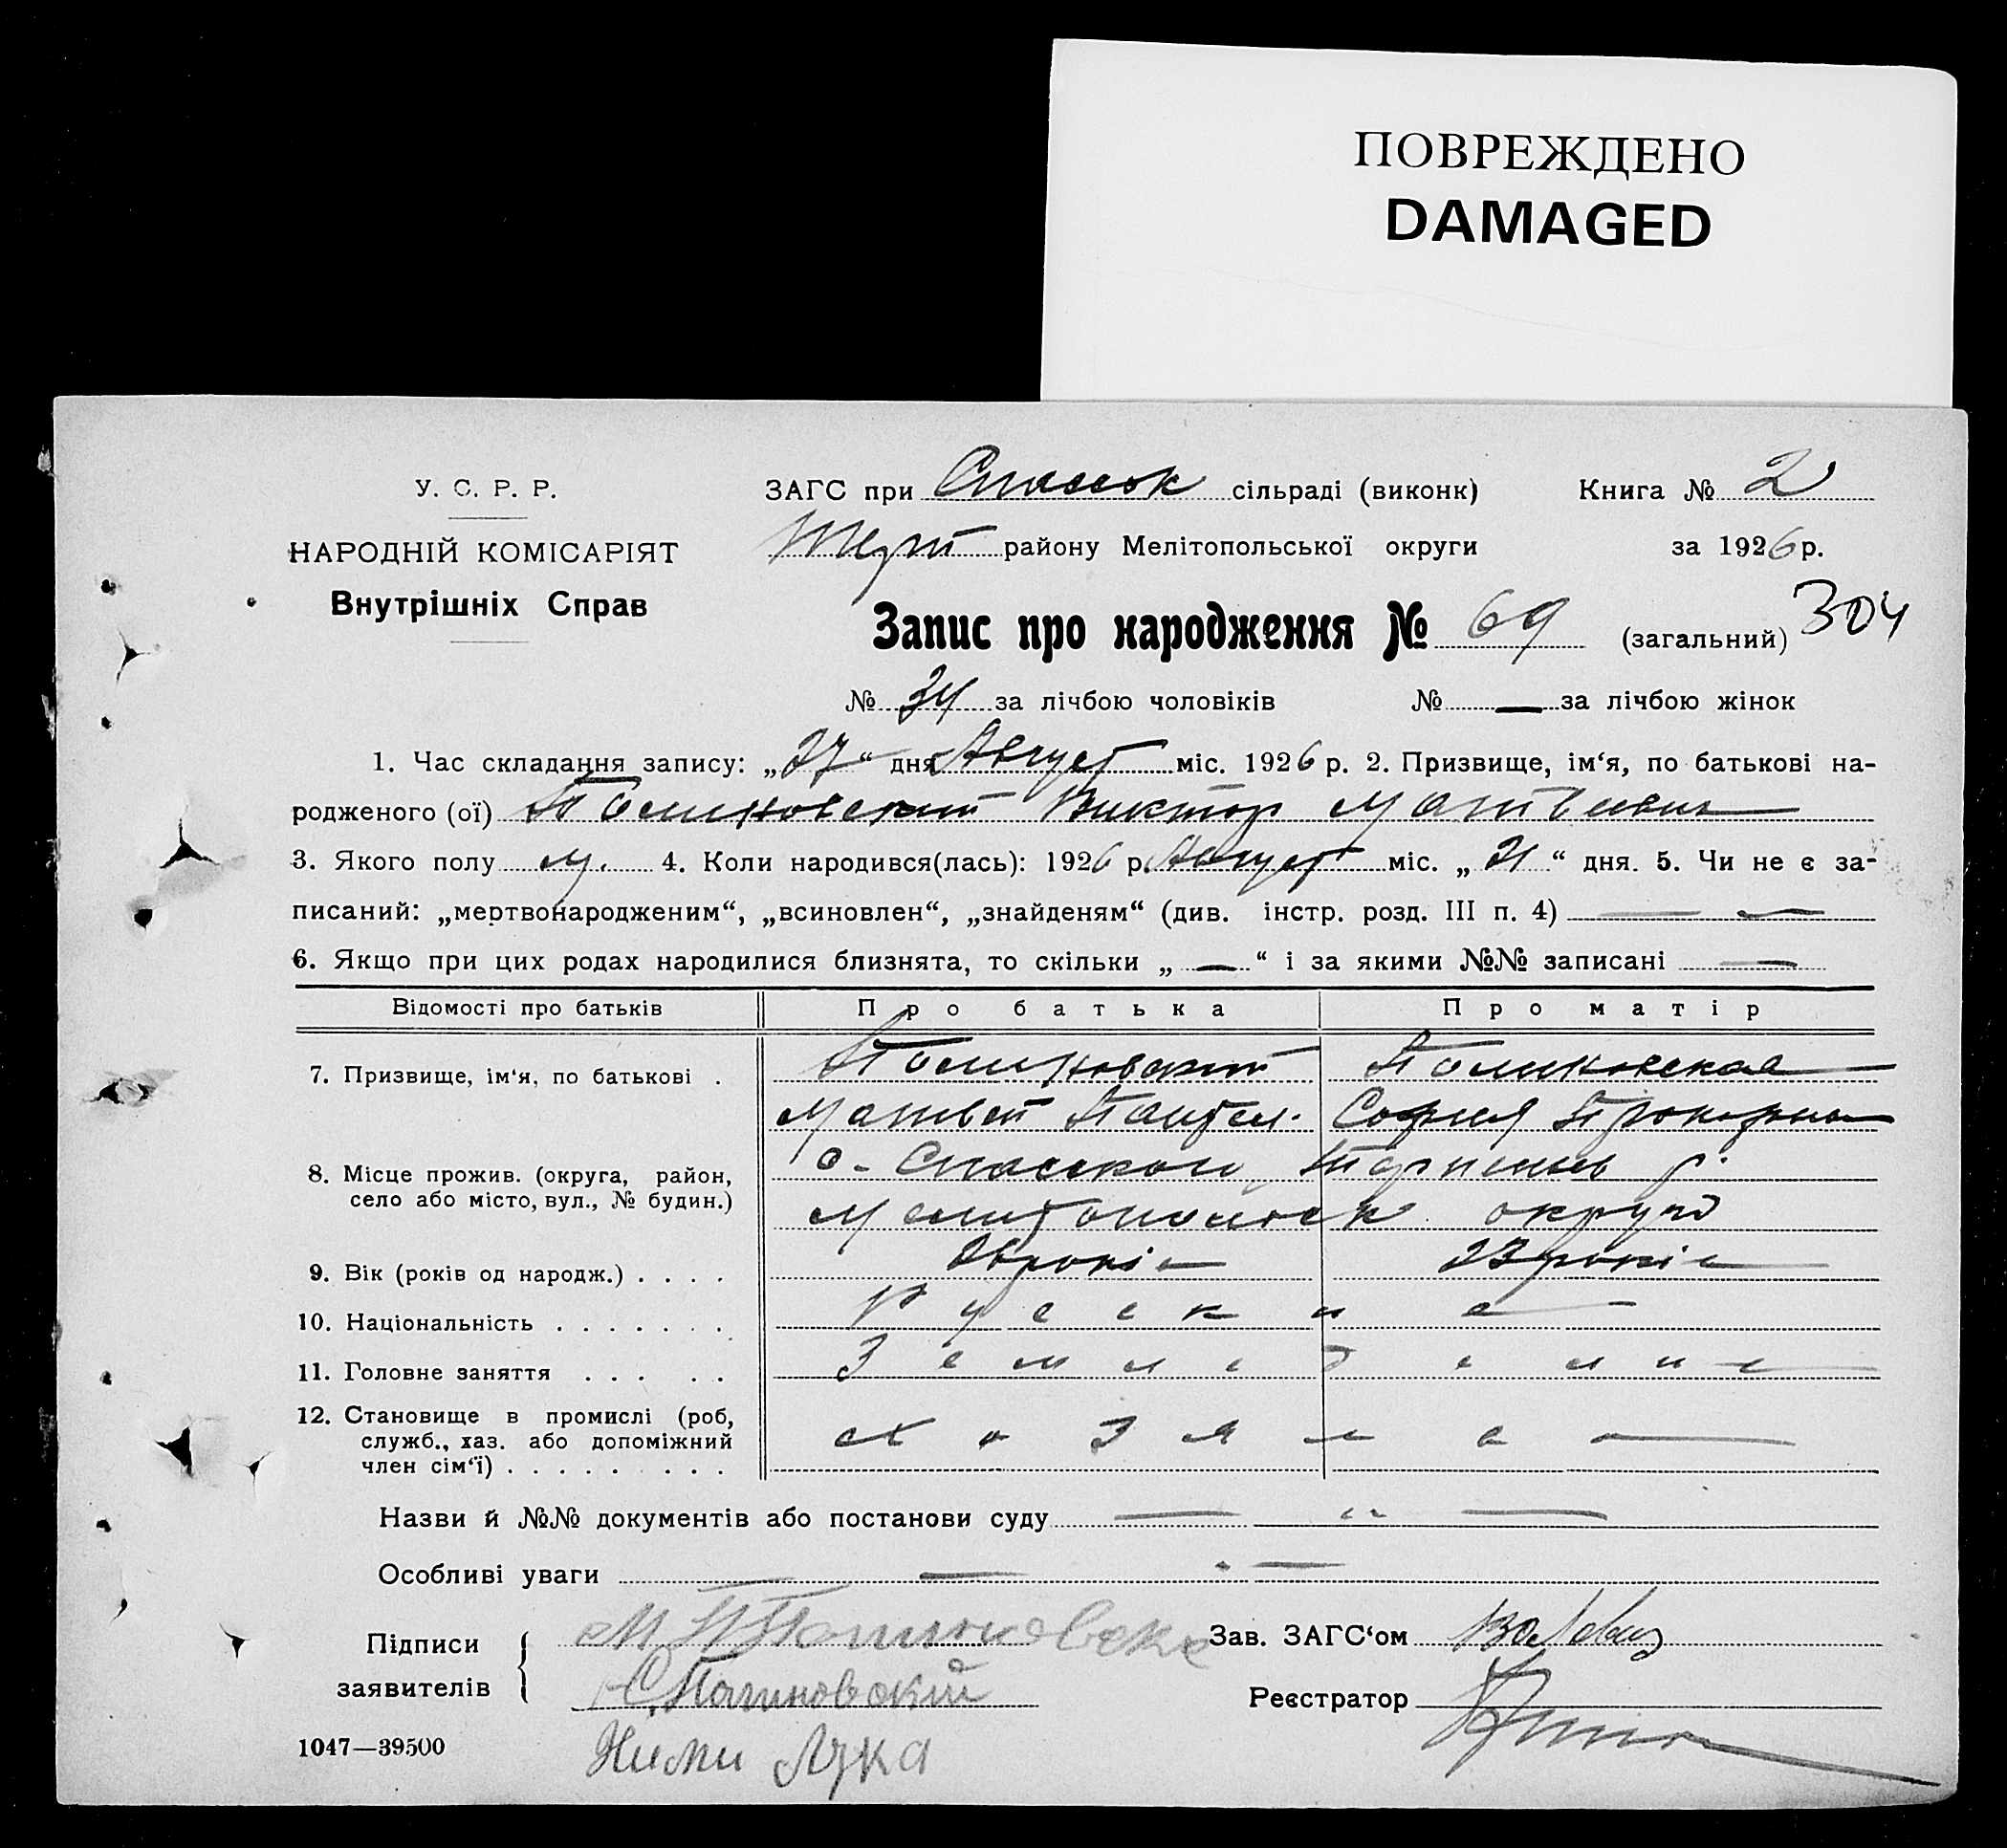 ПОВРЕЖДЕНО
DAMAGED
У. С. Р. Р.
НАРОДНІЙ КОМІСАРІЯТ
Внутрішніх Справ
ЗАГС при Спасск сільраді (виконк) Книга № 2
Терп району Мелітопольської округи за 1926 р.
Запис про народження № 69 (загальний) 304
№ 34 за лічбою чоловіків № — за лічбою жінок
1. Час складання запису: „27“ дня Август міс. 1926 р. 2. Призвище, ім‘я, по батькові на-
родженого (ої) Полиновский Виктор Матвеевич
3. Якого полу м. 4. Коли народився(лась): 1926 р. Август міс. „21“ дня. 5. Чи не є за-
писаний: „мертвонародженим“, „всиновлен“, „знайденям“ (див. інстр. розд. III п. 4) — —
6. Якщо при цих родах народилися близнята, то скільки „—“ і за якими №№ записані —
Відомості про батьків Про батька Про матір
7. Призвище, ім‘я, по батькові . Полиновский Полиновская
Матвей Пантел. София Прокофьевна
8. Місце прожив. (округа, район, с. Спасского, Терпеньев р.
село або місто, вул., № будин.) Мелитопольск округо
9. Вік (років од народж.) . . . . 26 років 23 років
10. Національність . . . . . . . Русские
11. Головне заняття . . . . . Земледелие
12. Становище в промислі (роб, Хозяева
служб., хаз. або допоміжний
член сім‘ї) . . . . . . . .
Назви й №№ документів або постанови суду — „ —
Особливі уваги — . —
Підписи
заявителів
М П Полиновск
С. Полиновский
Лука
Зав. ЗАГС‘ом
Реєстратор
1047—39500